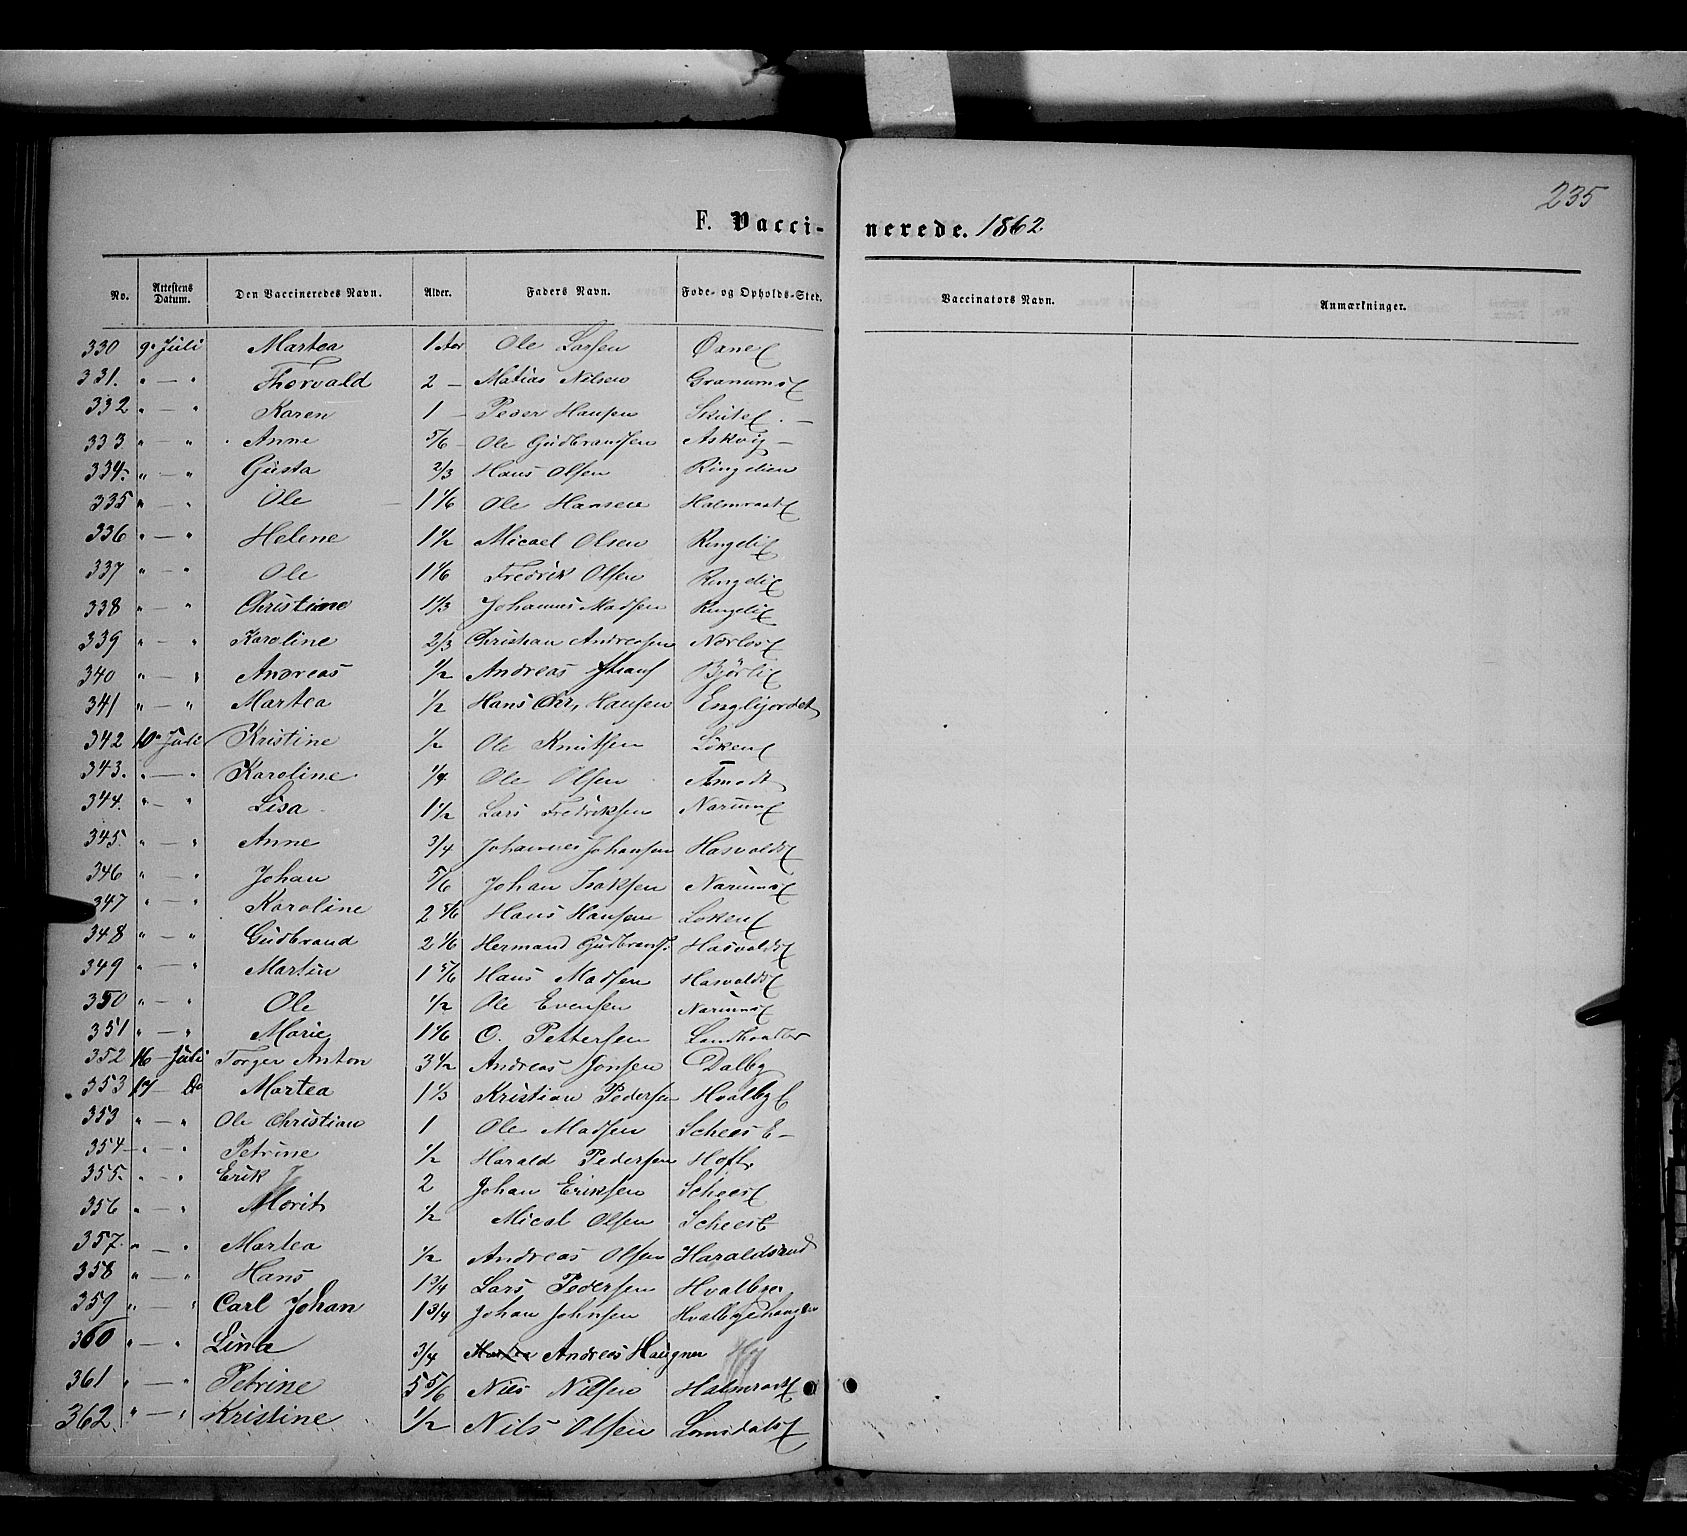 235
F. Vacci-nerede. 1862
No. Attestens Datum. Den Vaccineredes Navn. Alder. Faders Navn. Føde- og Opholds-Sted. Vaccinators Navn. Anmærkninger.
330 9. Juli Martea 1 Aar Ole Larsen Øxne
331. " — " Thorvald 2 — Matias Nilsen Granums
332 " — " Karen 1 — Peder Hansen Skute
333 " — " Anne 5/6 — Ole Gudbrandsen Askvig —
334. " — " Gusta 2/3 Hans Olsen Ringelien
335 " — " Ole 1 1/6 Ole Hansen Halmrast
336 " — " Helene 1 1/2 Micael Olsen Ringeli
337 " — " Ole 1 1/6 Fredrik Olsen Ringeli
338 " — " Christiane 1 1/3 Johannes Madsen Ringeli
339 " — " Karoline 2/3 Christian Andreasen Nørlos
340 " — " Andreas 1/2 Andreas Bjørli
341 " — " Martea 1/2 Hans Chr. Hansen Englijordet
342 10. Juli Kristine 1/2 Ole Knutsen Løken
343. " — " Karoline 1/4 Ole Olsen
344. " — " Lisa 1 1/2 Lars Fredriksen Narum
345. " — " Anne 3/4 Johannes Johansen Hasvolds
346 " — " Johan 5/6 Johan Isaksen Narums
347 " — " Karoline 2 5/6 Hans Hansen Løken
348 " — " Gudbrand 2 1/6 Hermand Gudbrands. Hasvolds
349 " — " Martin 1 5/6 Hans Madsen Hasvolds
350 " — " Ole 1/2 Ole Evensen Narums
351 " — " Marie 1 1/6 O. Pettersen Landhandler
352 16 Juli Torger Anton 3 1/2 Andreas Jonsen Dalby
353 17 — Do Martea 1 1/3 Kristian Pedersen Hvalby E
353 " — " Ole Christian 1 Ole Madsen Schees E —
354 — " " Petrine 1/2 Harald Pedersen
355. " — " Erik 2 Johan Eriksen Schees
356 " — " Morit 1/2 Micel Olsen Schees E
357. " — " Martea 1/2 Andreas Olsen Haraldsrud
358 " — " Hans 1 3/4 Lars Pedersen Hvalbye
359 " — " Carl Johan 1 3/4 Johan Johnsen
360 " — " Lina 3/4 Andreas Haugner
361 " — " Petrine 5 5/6 Nils Nilsen Halmrast
362 " — " Kristine 1/2 Nils Olsen Lomsdals